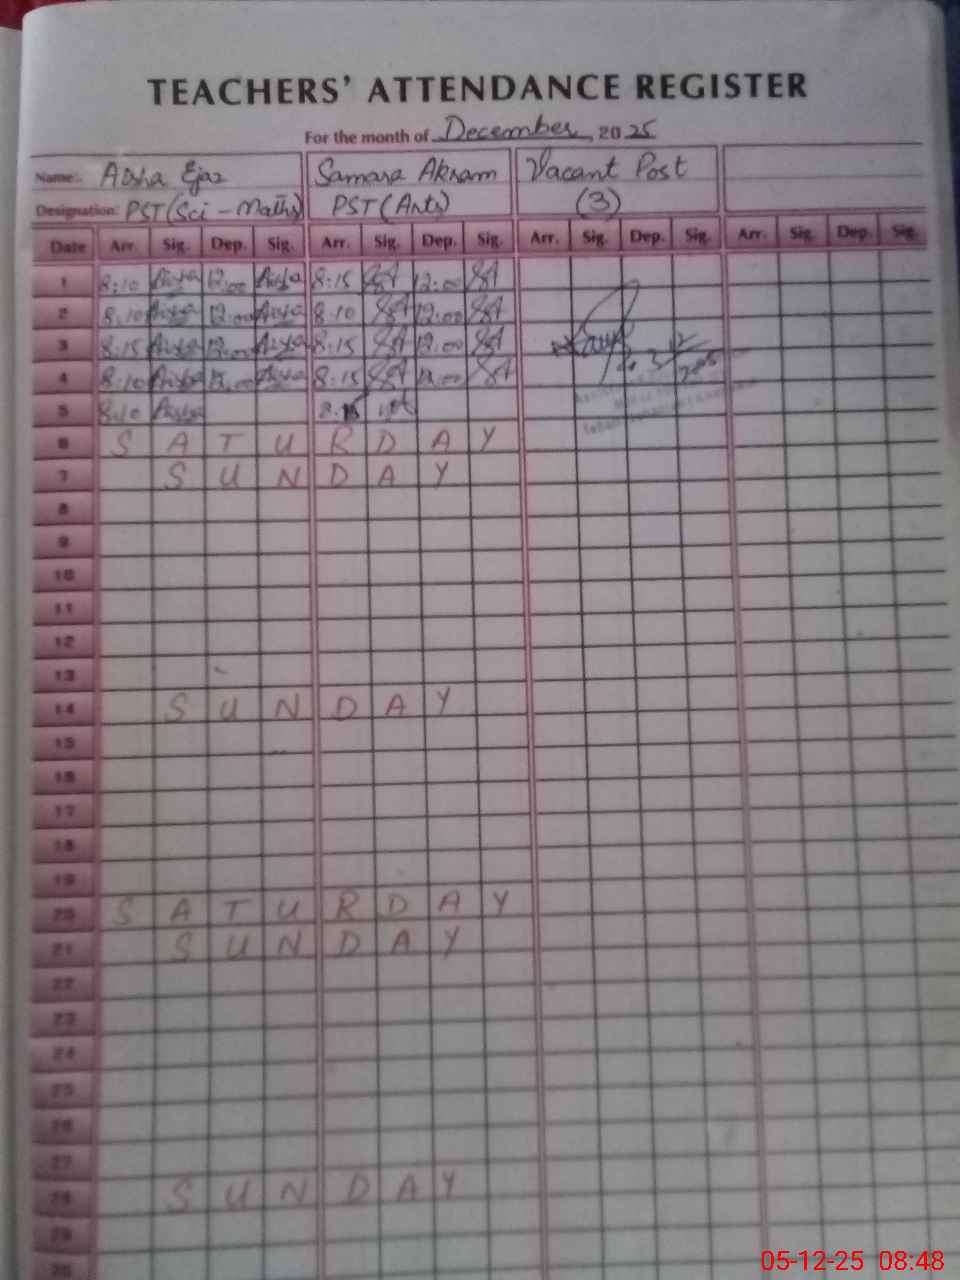 TEACHERS' ATTENDANCE REGISTER
For the month of December, 2025
Name:. Aisha Ejaz Samara Akram Vacant Post
Designation: PST (Sci - Maths) PST (Arts) (3)
Date Arr. Sig. Dep. Sig. Arr. Sig. Dep. Sig. Arr. Sig. Dep. Sig. Arr. Sig. Dep. Sig.
1 8:10 Aisha 12:00 Aisha 8:15 12:00
2 8:10 Aisha 12:00 Aisha 8:10 12:00
3 8:15 Aisha 12:00 Aisha 8:15 12:00
4 8:10 Aisha 12:00 Aisha 8:15 12:00
5 8:10 Aisha 8:15
6 S A T U R D A Y
7 S U N D A Y
8
9
10
11
12
13
14 S U N D A Y
15
16
17
18
19
20 S A T U R D A Y
21 S U N D A Y
22
23
24
25
26
27
28 S U N D A Y
29
30
05-12-25 08:48